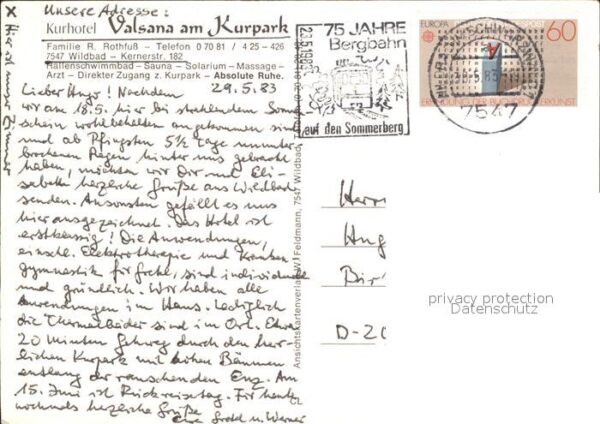 Unsere Adresse:
x Hier ist unser Zimmer
Kurhotel Valsana am Kurpark
Familie R. Rothfuß – Telefon 0 70 81 / 4 25 – 426
7547 Wildbad – Kernerstr. 182
Hallenschwimmbad – Sauna – Solarium – Massage –
Arzt – Direkter Zugang z. Kurpark – Absolute Ruhe.
29.5.83
Lieber Hugo! Nachdem
wir am 18.5. hier bei strahlendem Sonnen
schein wohlbehalten angekommen sind
und ab Pfingsten 5½ Tage ununter-
brochenen Regen hinter uns gebracht
haben, möchten wir Dir und Eli-
sabeth herzliche Grüße aus Wildbad
senden. Ansonsten gefällt es uns
hier ausgezeichnet. Das Hotel ist
erstklassig! Die Anwendungen,
einschl. Elektrotherapie und Kranken-
gymnastik für Gretel, sind individuell
und gründlich. Wir haben alle
Anwendungen im Haus. Lediglich
die Thermalbäder sind im Ort. Etwa
20 Minuten Gehweg durch den herr-
lichen Kurpark mit hohen Bäumen
entlang der rauschenden Enz. Am
15. Juni ist Rückreisetag. Für heute
nochmals herzliche Grüße
Eure Gretel u. Werner
Ansichtskartenverlag W. Feldmann, 7547 Wildbad,
75 JAHRE
Bergbahn
auf den Sommerberg
EUROPA
60
ERFINDUNG DER BUCHDRUCKERKUNST
7547
Herr
Hug
Bir
D-20
privacy protection
Datenschutz